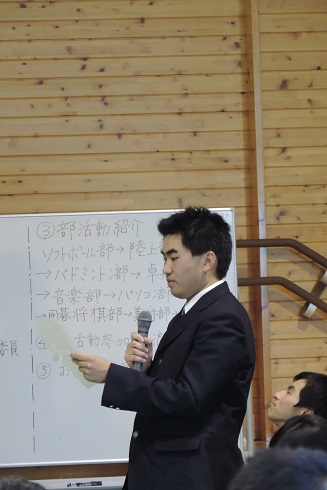 ③部活動紹介
ソフトボール部→陸上
→バドミントン部→卓
→音楽部→パソコン部
→囲碁将棋部→美術部→
委員
④ 活動参加
⑤ お